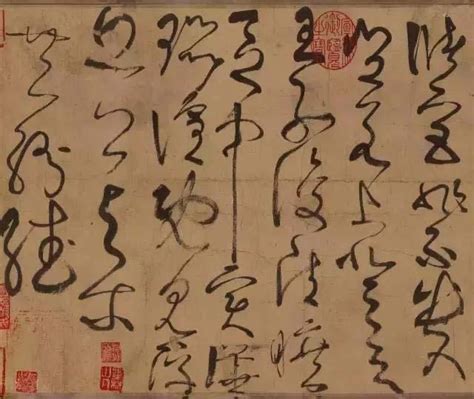 儲宮非不貴
豈若上登天
王子復清曠
區中實譁
囂喧既見浮
丘公與爾
共紛繙